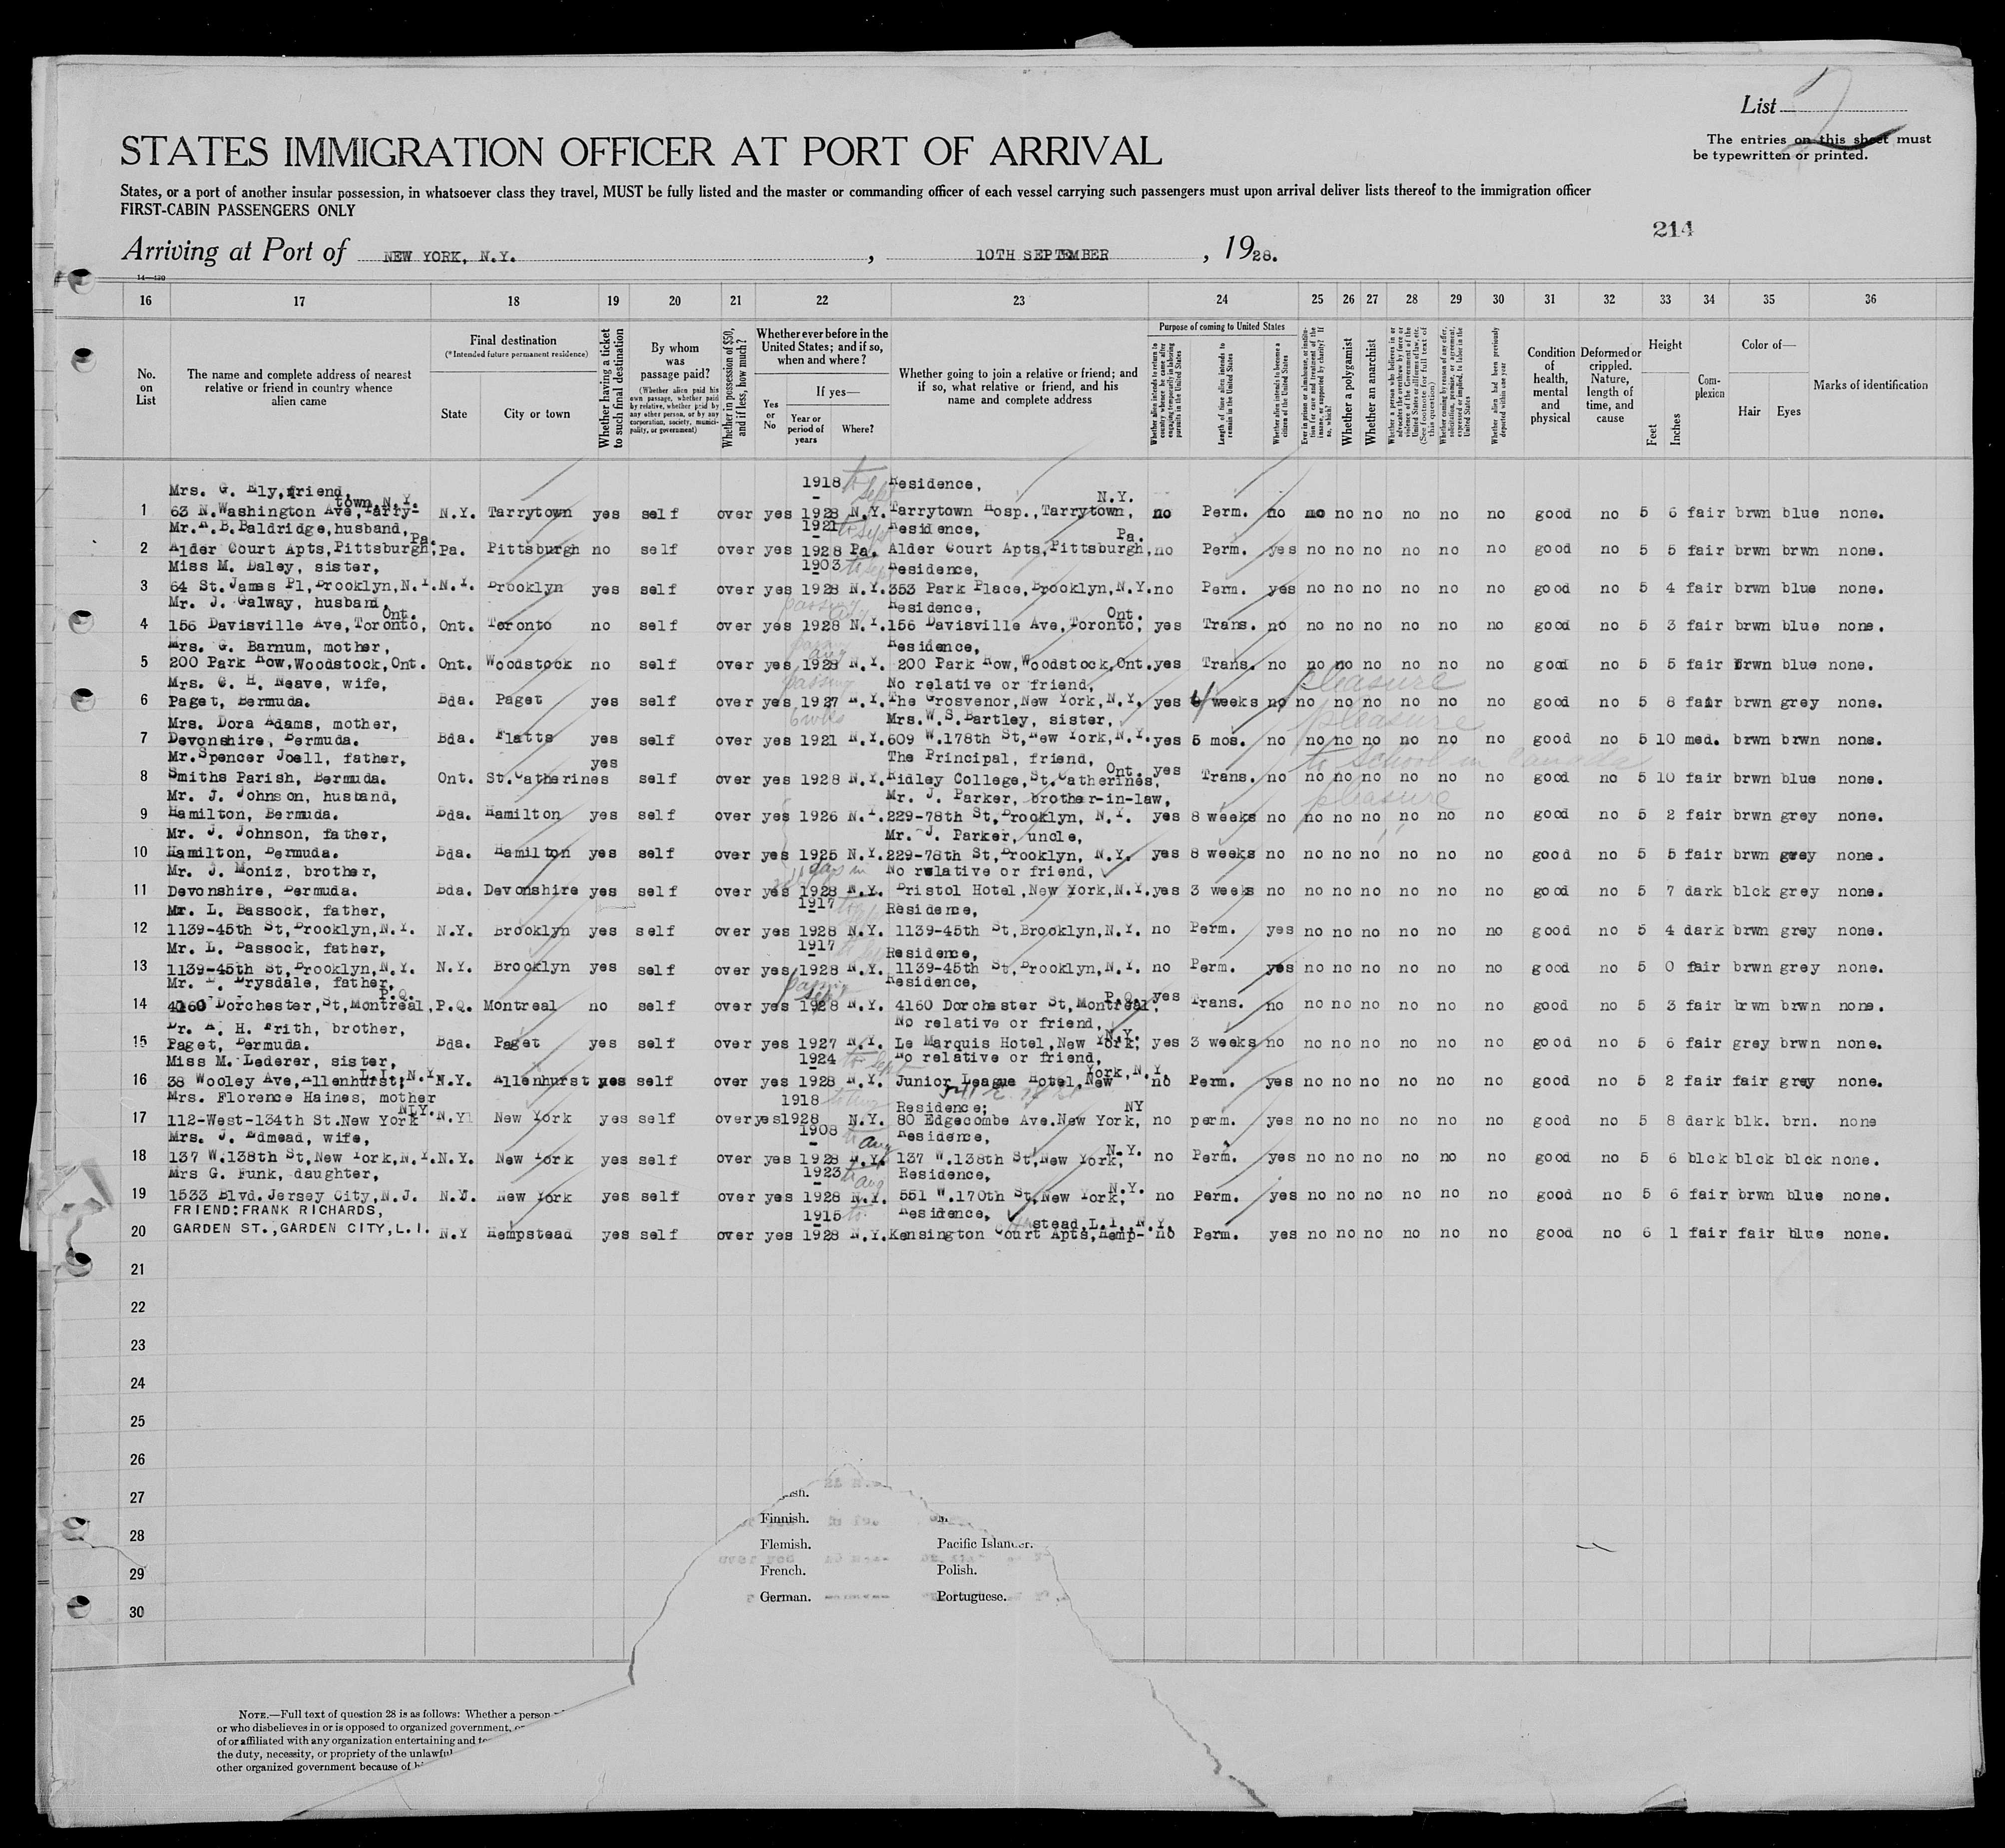 List 2
The entries on this sheet must
be typewritten or printed.
STATES IMMIGRATION OFFICER AT PORT OF ARRIVAL
States, or a port of another insular possession, in whatsoever class they travel, MUST be fully listed and the master or commanding officer of each vessel carrying such passengers must upon arrival deliver lists thereof to the immigration officer
FIRST-CABIN PASSENGERS ONLY
214
Arriving at Port of NEW YORK, N.Y. , 10TH SEPTEMBER , 1928.
16 17 18 19 20 21 22 23 24 25 26 27 28 29 30 31 32 33 34 35 36
No. on List
The name and complete address of nearest relative or friend in country whence alien came
Final destination
(*Intended future permanent residence)
State
City or town
Whether having a ticket to such final destination
By whom was passage paid?
(Whether alien paid his own passage, whether paid by relative, whether paid by any other person, or by any corporation, society, municipality, or government)
Whether in possession of $50, and if less, how much?
Whether ever before in the United States; and if so, when and where?
Yes or No
If yes—
Year or period of years
Where?
Whether going to join a relative or friend; and if so, what relative or friend, and his name and complete address
Purpose of coming to United States
Whether alien intends to return to country whence he came after engaging temporarily in laboring pursuits in the United States
Length of time alien intends to remain in the United States
Whether alien intends to become a citizen of the United States
Ever in prison or almshouse, or institution for care and treatment of the insane or supported by charity? If so, which?
Whether a polygamist
Whether an anarchist
Whether a person who believes in or advocates the overthrow by force or violence of the Government of the United States or all forms of law, etc. (See footnote for full text of this question)
Whether coming by reason of any offer, solicitation, promise, or agreement, expressed or implied, to labor in the United States
Whether alien had been previously deported within one year
Condition of health, mental and physical
Deformed or crippled. Nature, length of time, and cause
Height
Feet
Inches
Complexion
Color of—
Hair
Eyes
Marks of identification
Mrs. G. Ely, friend, 1918 to Sept Residence,
1 63 N.Washington Ave,Tarrytown,N.Y. N.Y. Tarrytown yes self over yes 1928 N.Y. Tarrytown Hosp.,Tarrytown, N.Y. no Perm. no no no no no no no good no 5 6 fair brwn blue none.
Mr. B.Baldridge,husband, 1921 to Sept Residence,
2 Alder Court Apts,Pittsburgh, Pa. Pa. Pittsburgh no self over yes 1928 Pa. Alder Court Apts,Pittsburgh, Pa. no Perm. yes no no no no no no good no 5 5 fair brwn brwn none.
Miss M. Daley, sister, 1903 to Sept Residence,
3 64 St.James Pl,Brooklyn,N.Y. N.Y. Brooklyn yes self over yes 1928 N.Y. 353 Park Place,Brooklyn,N.Y. no Perm. yes no no no no no no good no 5 4 fair brwn blue none.
Mr. J. Galway, husband, passing Residence,
4 156 Davisville Ave,Toronto, Ont. Ont. Toronto no self over yes 1928 N.Y. 156 Davisville Ave,Toronto, Ont. yes Trans. no no no no no no no good no 5 3 fair brwn blue none.
Mrs. G. Barnum, mother, passing Aug Residence,
5 200 Park Row,Woodstock,Ont. Ont. Woodstock no self over yes 1928 N.Y. 200 Park Row,Woodstock,Ont. yes Trans. no no no no no no no good no 5 5 fair brwn blue none.
Mrs. C. H. Neave, wife, passing No relative or friend, pleasure
6 Paget, Bermuda. Bda. Paget yes self over yes 1927 N.Y. The Grosvenor,New York,N.Y. yes 4 weeks no no no no no no no good no 5 8 fair brwn grey none.
Mrs. Dora Adams, mother, 6 wks Mrs.W.S.Bartley, sister, pleasure
7 Devonshire, Bermuda. Bda. Flatts yes self over yes 1921 N.Y. 609 W.178th St,New York,N.Y. yes 5 mos. no no no no no no no good no 5 10 med. brwn brwn none.
Mr.Spencer Joell, father, The Principal, friend, to school in Canada
8 Smiths Parish, Bermuda. Ont. St.Catherines yes self over yes 1928 N.Y. Ridley College,St.Catherines, Ont. yes Trans. no no no no no no no good no 5 10 fair brwn blue none.
Mr. J. Johnson, husband, Mr. J. Parker, brother-in-law, pleasure
9 Hamilton, Bermuda. Bda. Hamilton yes self over yes 1926 N.Y. 229-78th St,Brooklyn, N.Y. yes 8 weeks no no no no no no no good no 5 2 fair brwn grey none.
Mr. J. Johnson, father, Mr. J. Parker, uncle,
10 Hamilton, Bermuda. Bda. Hamilton yes self over yes 1925 N.Y. 229-78th St,Brooklyn, N.Y. yes 8 weeks no no no no no no no good no 5 5 fair brwn grey none.
Mr. J. Moniz, brother, days in No relative or friend,
11 Devonshire, Bermuda. Bda. Devonshire yes self over yes 1928 N.Y. Bristol Hotel,New York,N.Y. yes 3 weeks no no no no no no no good no 5 7 dark blck grey none.
Mr. L. Bassock, father, 1917 to Residence,
12 1139-45th St,Brooklyn,N.Y. N.Y. Brooklyn yes self over yes 1928 N.Y. 1139-45th St,Brooklyn,N.Y. no Perm. yes no no no no no no good no 5 4 dark brwn grey none.
Mr. L. Bassock, father, 1917 to Sept Residence,
13 1139-45th St,Brooklyn,N.Y. N.Y. Brooklyn yes self over yes 1928 N.Y. 1139-45th St,Brooklyn,N.Y. no Perm. yes no no no no no no good no 5 0 fair brwn grey none.
Mr. Drysdale, father, passing Sept Residence,
14 4160 Dorchester,St,Montreal, P.Q. P.Q. Montreal no self over yes 1928 N.Y. 4160 Dorchester St,Montreal, P.Q. yes Trans. no no no no no no no good no 5 3 fair brwn brwn none.
Dr. H. Frith, brother, No relative or friend,
15 Paget, Bermuda. Bda. Paget yes self over yes 1927 N.Y. Le Marquis Hotel,New York, N.Y. yes 3 weeks no no no no no no no good no 5 6 fair grey brwn none.
Miss M. Lederer, sister, 1924 to Sept No relative or friend,
16 38 Wooley Ave,Allenhurst, L.I.,N.Y. N.Y. Allenhurst yes self over yes 1928 N.Y. Junior League Hotel,New York,N.Y. no Perm. yes no no no no no no good no 5 2 fair fair grey none.
Mrs. Florence Haines, mother 1918 to Aug Residence;
17 112-West-134th St.New York NLY. N.Y New York yes self over yes 1928 N.Y. 80 Edgecombe Ave.New York, NY no perm. yes no no no no no no good no 5 8 dark blk. brn. none
Mrs. J. Edmead, wife, 1908 to Aug Residence,
18 137 W.138th St,New York,N.Y. N.Y. New York yes self over yes 1928 N.Y. 137 W.138th St,New York, N.Y. no Perm. yes no no no no no no good no 5 6 blck blck blck none.
Mrs G. Funk, daughter, 1923 to Aug Residence,
19 1533 Blvd.Jersey City,N.J. N.J. New York yes self over yes 1928 N.Y. 551 W.170th St,New York, N.Y. no Perm. yes no no no no no no good no 5 6 fair brwn blue none.
FRIEND:FRANK RICHARDS, 1915 to Residence,
20 GARDEN ST.,GARDEN CITY,L.I. N.Y Hempstead yes self over yes 1928 N.Y. Kensington Court Apts,Hempstead,L.I.,N.Y. no Perm. yes no no no no no no good no 6 1 fair fair blue none.
21
22
23
24
25
26
27
28
29
30
Finnish.
Flemish. Pacific Islander.
French. Polish.
German. Portuguese.
NOTE.—Full text of question 28 is as follows: Whether a person
or who disbelieves in or is opposed to organized government,
of or affiliated with any organization entertaining and
the duty, necessity, or propriety of the unlawful
other organized government because of